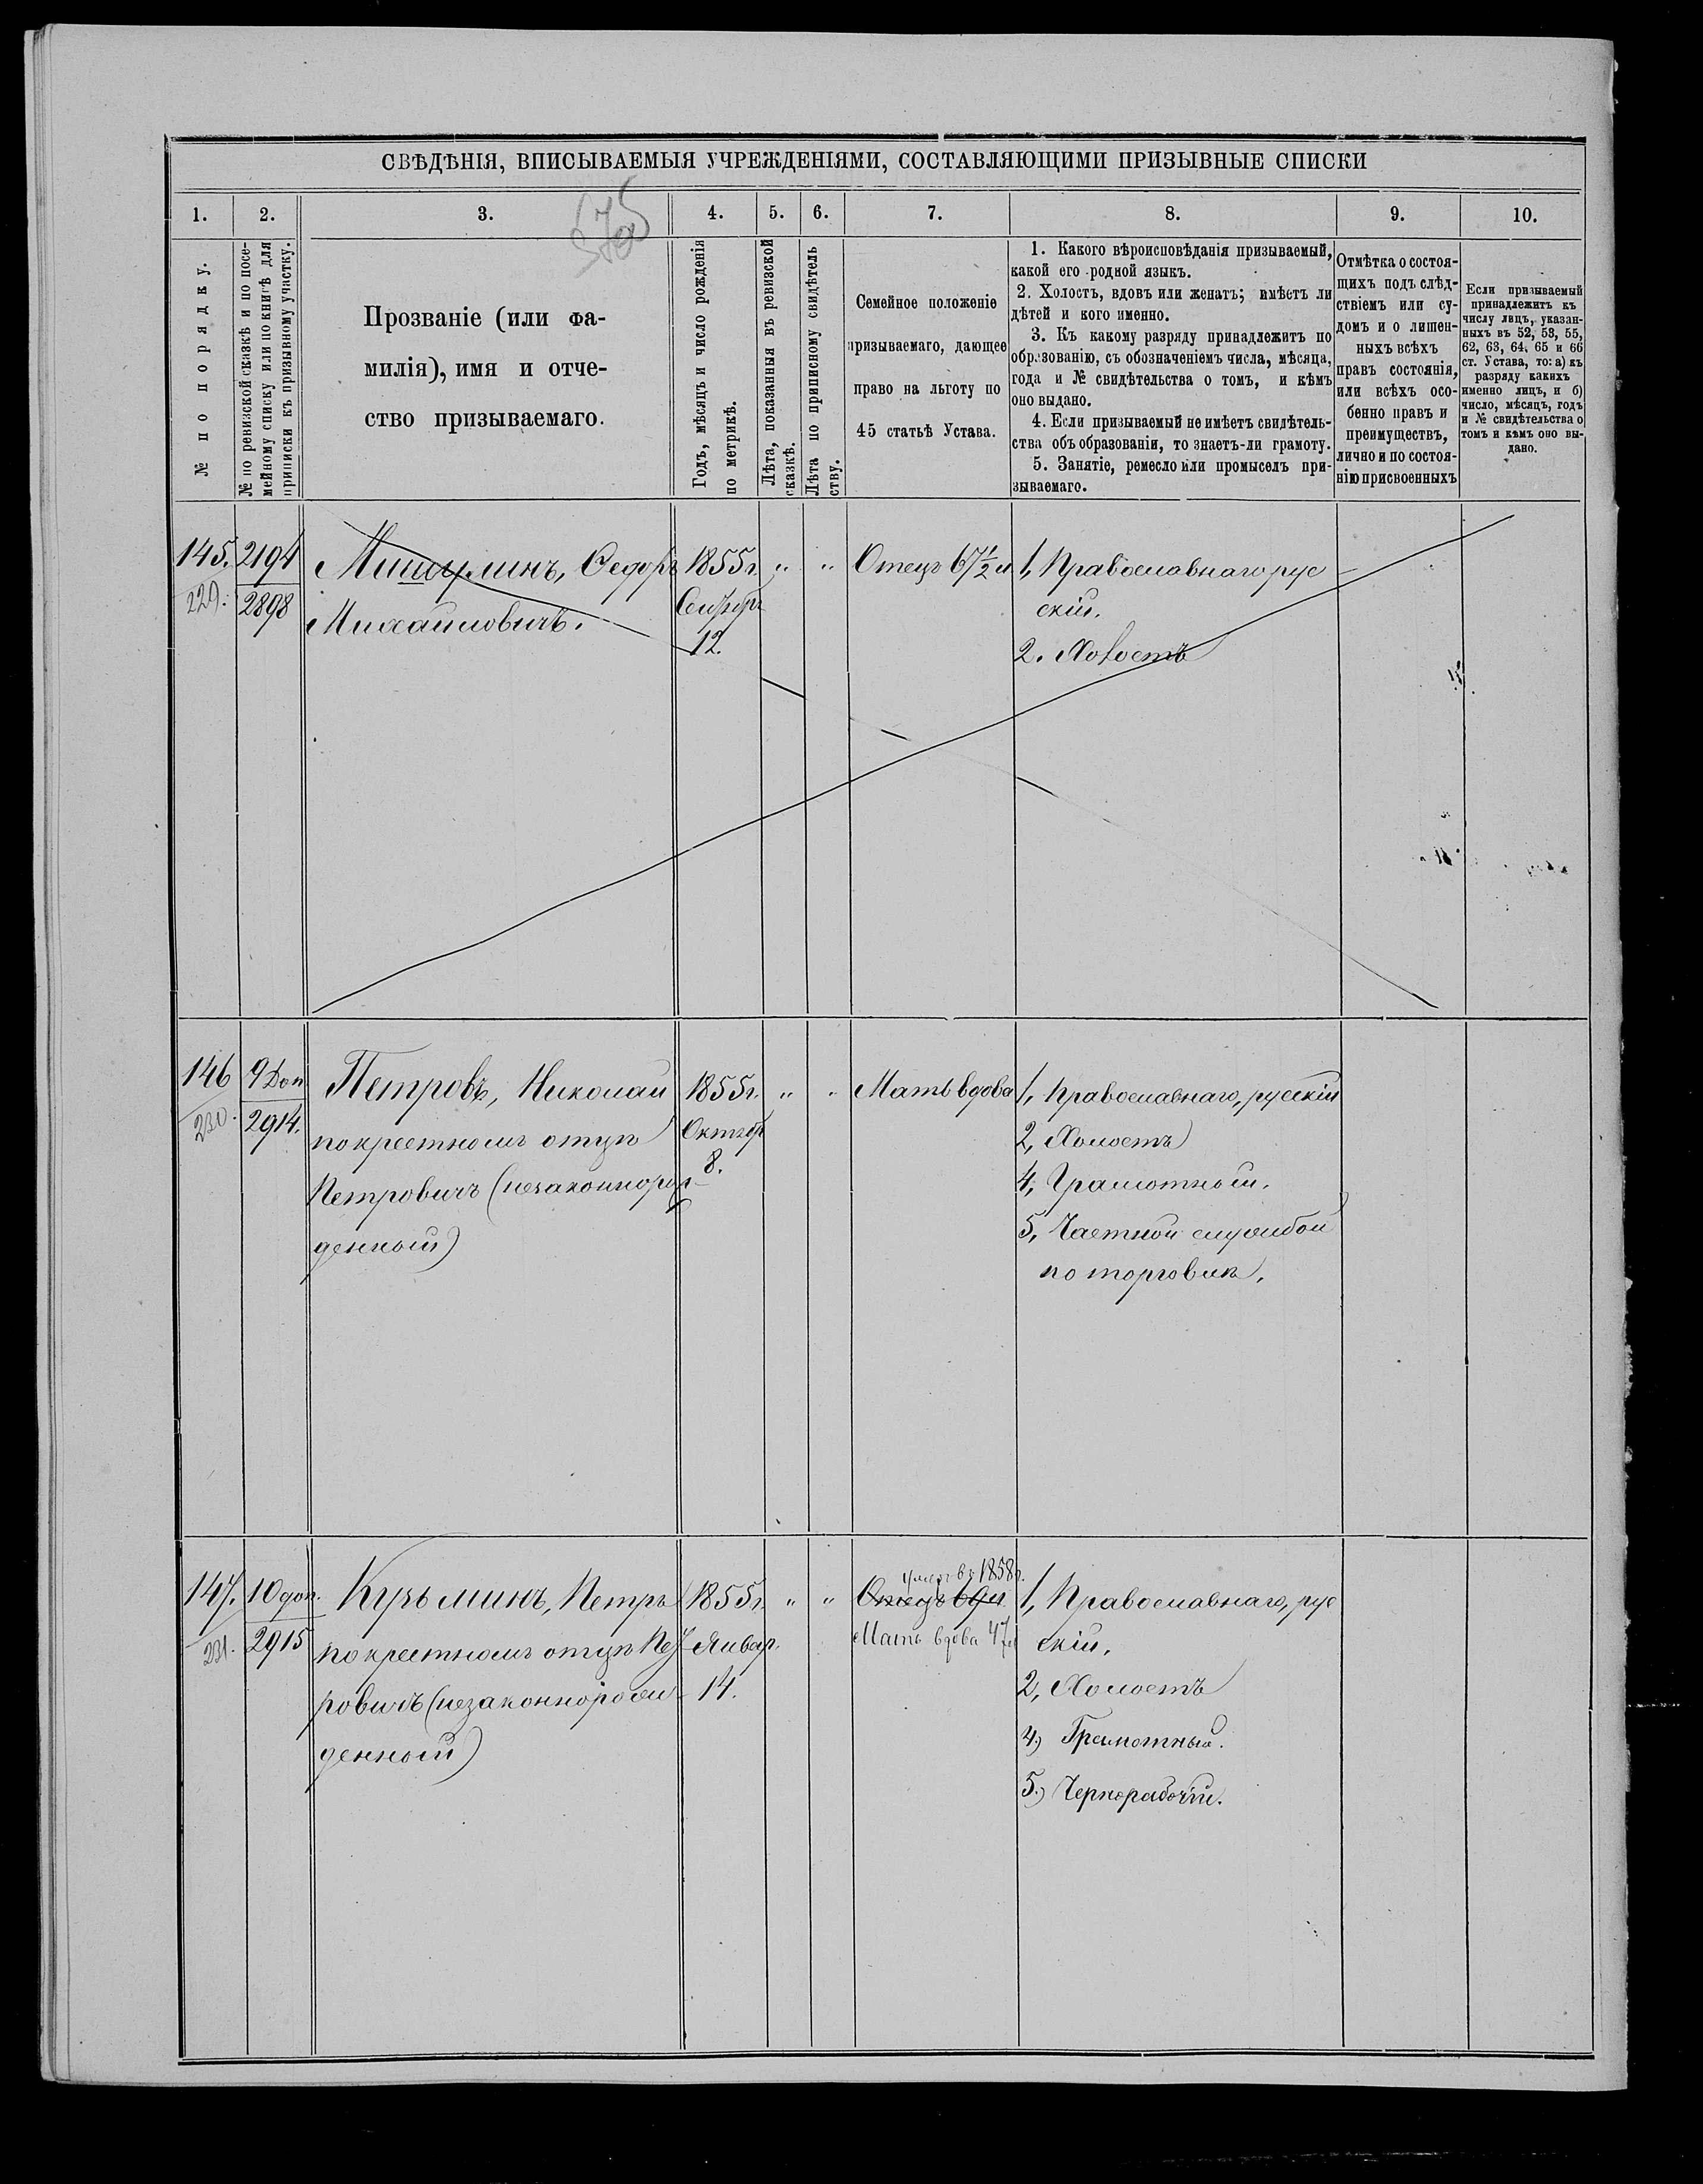 СВѢДѢНІЯ, ВПИСЫВАЕМЫЯ УЧРЕЖДЕНІЯМИ, СОСТАВЛЯЮЩИМИ ПРИЗЫВНЫЕ СПИСКИ
1. 2. 3. 4. 5. 6. 7. 8. 9. 10.
№ по порядку.
№ по ревизской сказкѣ и по посе-
мейному списку или по книгѣ для
приписки къ призывному участку.
Прозваніе (или фа-
милія), имя и отче-
ство призываемаго.
Годъ, мѣсяцъ и число рожденія
по метрикѣ.
Лѣта, показанныя въ ревизской
сказкѣ.
Лѣта по приписному свидѣтель
ству.
Семейное положеніе
призываемаго, дающее
право на льготу по
45 статьѣ Устава.
1. Какого вѣроисповѣданія призываемый,
какой его родной языкъ.
2. Холостъ, вдовъ или женатъ; имѣетъ ли
дѣтей и кого именно.
3. Къ какому разряду принадлежитъ по
образованію, съ обозначеніемъ числа, мѣсяца,
года и № свидѣтельства о томъ, и кѣмъ
оно выдано.
4. Если призываемый не имѣетъ свидѣтель-
ства объ образованіи, то знаетъ-ли грамоту.
5. Занятіе, ремесло или промыселъ при-
зываемаго.
Отмѣтка о состоя-
щихъ подъ слѣд-
ствіемъ или су-
домъ и о лишен-
ныхъ всѣхъ
правъ состоянія,
или всѣхъ осо-
бенно правъ и
преимуществъ,
лично и по состоя-
нію присвоенныхъ
Если призываемый
принадлежитъ къ
числу лицъ, указан-
ныхъ въ 52, 53, 55,
62, 63, 64, 65 и 66
ст. Устава, то: а) къ
разряду какихъ
именно лицъ, и б)
число, мѣсяцъ, годъ
и № свидѣтельства о
томъ и кѣмъ оно вы-
дано.
145.
229.
2194
2898
Мишулинъ, Федоръ
Михайловичъ.
1855г.
12.
" "
Отецъ 67½ л
1, Православнаго рус
скій.
2. Холостъ
146
230.
9 Доп
2914.
Петровъ, Николай
по крестномъ отцѣ
Петровичъ (незаконнорож-
денный)
1855г.
Октябр
8.
" "
Мать вдова
1, Православнаго, русскій
2, Холостъ
4, Грамотный.
5, Частной службой
по торговлѣ.
147.
231.
10 доп.
2915
Кузьминъ, Петръ
по крестномъ отцѣ Пет
ровичъ (незаконнорож
денный)
1855г.
Январ.
14.
" "
умеръ въ 1858г.
Отецъ 69 л
Мать вдова 47 л
1, Православнаго, рус
скій.
2, Холостъ
4) Грамотный.
5.) Чернорабочій.